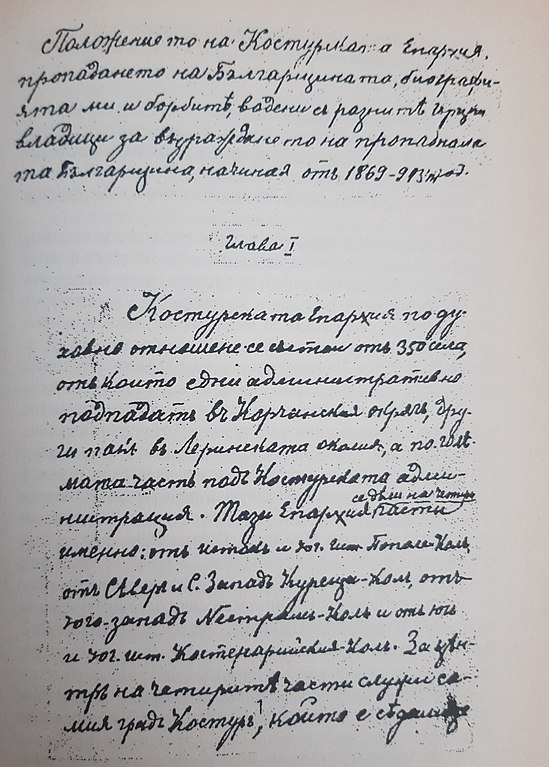 Положението на Костурската Епархия,
пропадането на Българщината, биографи-
ята ми и борбитѣ, водени съ разнитѣ гръцки
владици за възраждането на пропаднала
та Българщина, начиная отъ 1869-913 год.
Глава I
Костурската Епархия по ду-
ховно отношене се състои отъ 350 села,
отъ които едни административно
подпадатъ въ Корчанския окрѫгъ, дру-
ги пакъ въ Леринската околия, а по голѣ-
мата часть подъ Костурската адми-
се дѣли на четри
нистрация. Тази Епархия части
именно: отъ истокъ и юг. ист. Пополе-Колъ,
отъ Сѣверъ и С. Западъ Куреща-Кол, отъ
юго-западъ Нестрамъ-Колъ и отъ югъ
и юг. ист. Костенарийския-Колъ. За цѣн-
търъ на четиритѣ части служи са-
мия градъ Костуръ, който е седалище